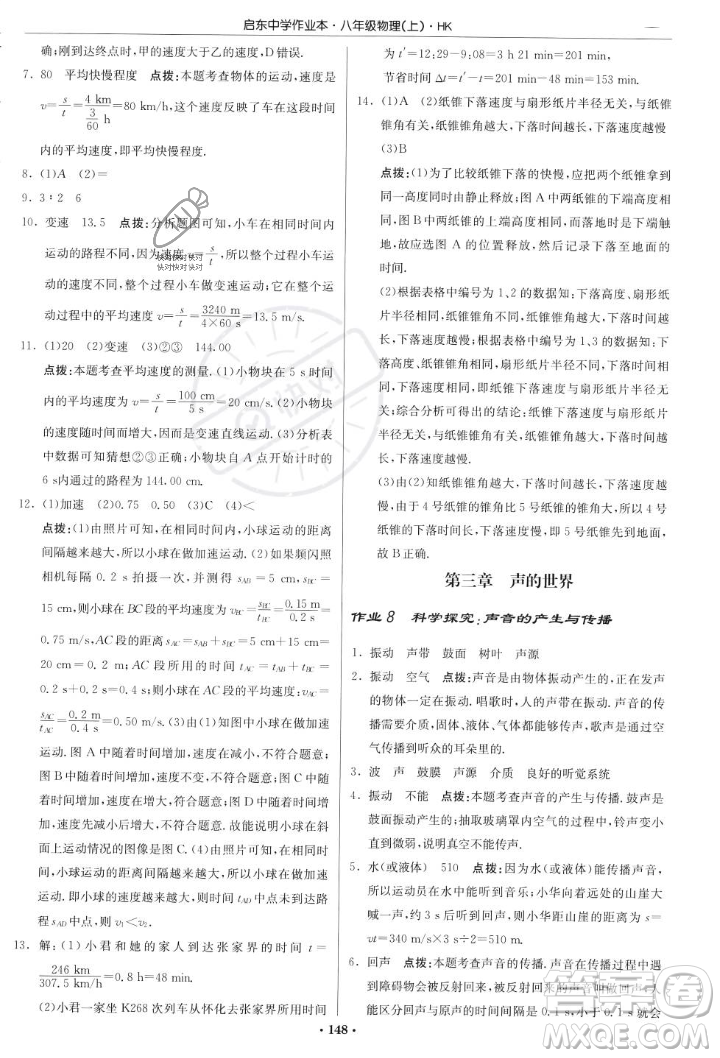 启东中学作业本·八年级物理(上)·HK
确;刚到达终点时,甲的速度大于乙的速度,D错误.
7. 80 平均快慢程度 点拨:本题考查物体的运动,速度是
v=s/t=4 km/(3/60 h)=80 km/h,这个速度反映了车在这段时间
内的平均速度,即平均快慢程度.
8. (1)A (2)=
9. 3∶2 6
10. 变速 13.5 点拨:分析题图可知,小车在相同时间内
运动的路程不同,因为速度=路程/时间,所以这段时间内小车运
动的速度不同,所以整个过程小车做变速运动.小车在运
动过程中的平均速度v=s/t=3240 m/(4×60 s)=13.5 m/s.
11. (1)20 (2)变速 (3)②③ 144.00
点拨:本题考查平均速度的测量.(1)小物块在 5 s 时间
内的平均速度为v=s/t=100 cm/5 s=20 cm/s.(2)小物块
的速度随时间而增大,因而是变速直线运动.(3)分析表
中数据可知猜想②③正确;小物块自 A 点开始计时,
6 s内通过的路程为 144.00 cm.
12. (1)加速 (2)0.75 0.50 (3)C (4)<
点拨:(1)由照片可知,在相同时间内,小球运动的距离
间隔越来越大,所以小球在做加速运动.(2)如果频闪照
相机每隔 0.2 s 拍摄一次,BC 段所用的时间 tBC=
0.2 s,则小球在 BC 段的平均速度:vBC=sBC/tBC=0.15 m/0.2 s=
0.75 m/s,AC段的距离 sAC=sAB+sBC=5 cm+15 cm=
20 cm=0.2 m,AC 段所用的时间 tAC=tAB+tBC=
0.2 s+0.2 s=0.4 s,则小球在 AC 段的平均速度 vAC=
sAC/tAC=0.2 m/0.4 s=0.50 m/s.(3)由(1)知图中小球做加速
运动.图 A 中随着时间增加,速度不变,不符合题意;图
B 中随着时间增加,速度减小,不符合题意;图 D 中随着
时间增加,速度先减小后增加,不符合题意;图 C 中随着
时间增加,速度增加,符合题意.故能大致描述小球在斜
面上运动情况的图像是图 C.(4)因为小球做加速运动,
越来越快,所以小球运动到中间时刻时,还未到达路
程 sAD中点,则 v₁<v₂.
13. 解:(1)小君和她的家人到达张家界的时间 t=
246 km/307.5 km/h=0.8 h=48 min.
(2)小君一家坐 K268 次列车从怀化去张家界所用时间
为 t′=12:29-9:08=3 h 21 min=201 min,
节省时间 Δt=t′-t=201 min-48 min=153 min.
14. (1)A (2)纸锥下落速度与扇形纸片半径无关,与纸锥
锥角有关,纸锥锥角越大,下落时间越长,下落速度越慢
(3)B
点拨:(1)为了比较纸锥下落的快慢,应把纸锥从同一
高度同时由静止释放;图 A 中两纸锥的下端高度相
同,图 B 中两纸锥的上端高度相同,而落地时是下端触
地,故应选图 A 的位置释放,尽量测下落至地面的时
间.
(2)根据表格中编号为 1、2 的数据知:下落高度、扇形
纸片的圆心角相同,纸片半径不同,纸锥下落的时间相
同,则纸锥下落速度与扇形纸片半径无关;由表格中编
号 1、3、4 的数据知:下落高度相同,扇形纸片半径相
同,纸锥锥角越大,下落时间越长,即下落速度越
慢;综合分析可得出的结论:纸锥锥角越大,下落时间
越长,下落速度越慢.
(3)由(2)知,纸锥锥角越大,下落时间越长,下落速度
越慢,纸锥的下落时间与纸锥锥角有关,与扇形纸片的
半径无关,由于 4 号纸锥的锥角比 5 号纸锥的锥角大,
所以 4 号纸锥的下落时间比 5 号纸锥的下落时间长,
故 B 正确.
第三章 声的世界
作业8 科学探究:声音的产生与传播
1. 振动 声带 鼓面 树叶 声源
2. 振动 空气 点拨:声音是由物体振动产生的,正在发声
的物体一定在振动.唱歌时,人的声带在振动.声音的传
播需要介质,固体、液体、气体都能够传声,歌声是通过空
气传播到听众的耳朵里的.
3. 波 声 鼓膜 声源 介质 良好的听觉系统
4. 振动 不能 点拨:本题考查声音的产生与传播.鼓声是
鼓面振动产生的;抽取玻璃罩内空气的过程中,声音变小
直到微弱,说明真空不能传声.
5. 水(或液体) 510 点拨:因为水(或液体)能传播声音,
所以运动员在水中能听到音乐.小华对着远处的山崖大
喊一声,约 3 s 后听到回声,则小华距离山崖约 s=
vt=340 m/s×3 s/2=510 m.
6. 回声 点拨:本题考查声音的传播.声音在传播时,遇到
障碍物会被反射回来,再次被人听到,这就叫回声.人
能区分回声与原声的时间间隔等于 0.1 s,小于 0.1 s 就
·148·
快对快对快对
快对快对快对
答案圈